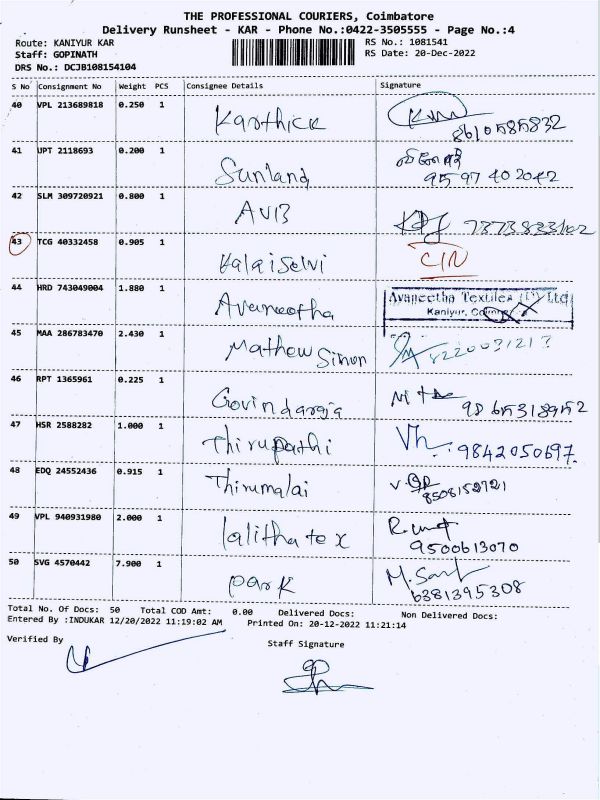 THE PROFESSIONAL COURIERS, Coimbatore
Delivery Runsheet - KAR - Phone No.:0422-3505555 - Page No.:4
Route: KANIYUR KAR
RS No.: 1081541
Staff: GOPINATH
RS Date: 20-Dec-2022
DRS No.: DCJB108154104
S No Consignment No Weight PCS Consignee Details Signature
40 VPL 213689818 0.250 1
Karthick
8610585832
41 UPT 2118693 0.200 1
Sunland
9597402042
42 SLM 309720921 0.800 1
AVB
43 TCG 40332458 0.905 1
Kalaiselvi
44 HRD 743049004 1.880 1
Avaneetha
Avaneetha Textiles (P) Ltd
Kaniyur,
45 MAA 286783470 2.430 1
Mathew Simon
46 RPT 1365961 0.225 1
Govindaraja
47 HSR 2588282 1.000 1
Thirupathi
9842050697
48 EDQ 24552436 0.915 1
Thirumalai
8508152121
49 VPL 940931980 2.000 1
lalitha tex
9500613070
50 SVG 4570442 7.900 1
park
6381395308
Total No. Of Docs: 50 Total COD Amt: 0.00 Delivered Docs: Non Delivered Docs:
Entered By :INDUKAR 12/20/2022 11:19:02 AM Printed On: 20-12-2022 11:21:14
Verified By
Staff Signature